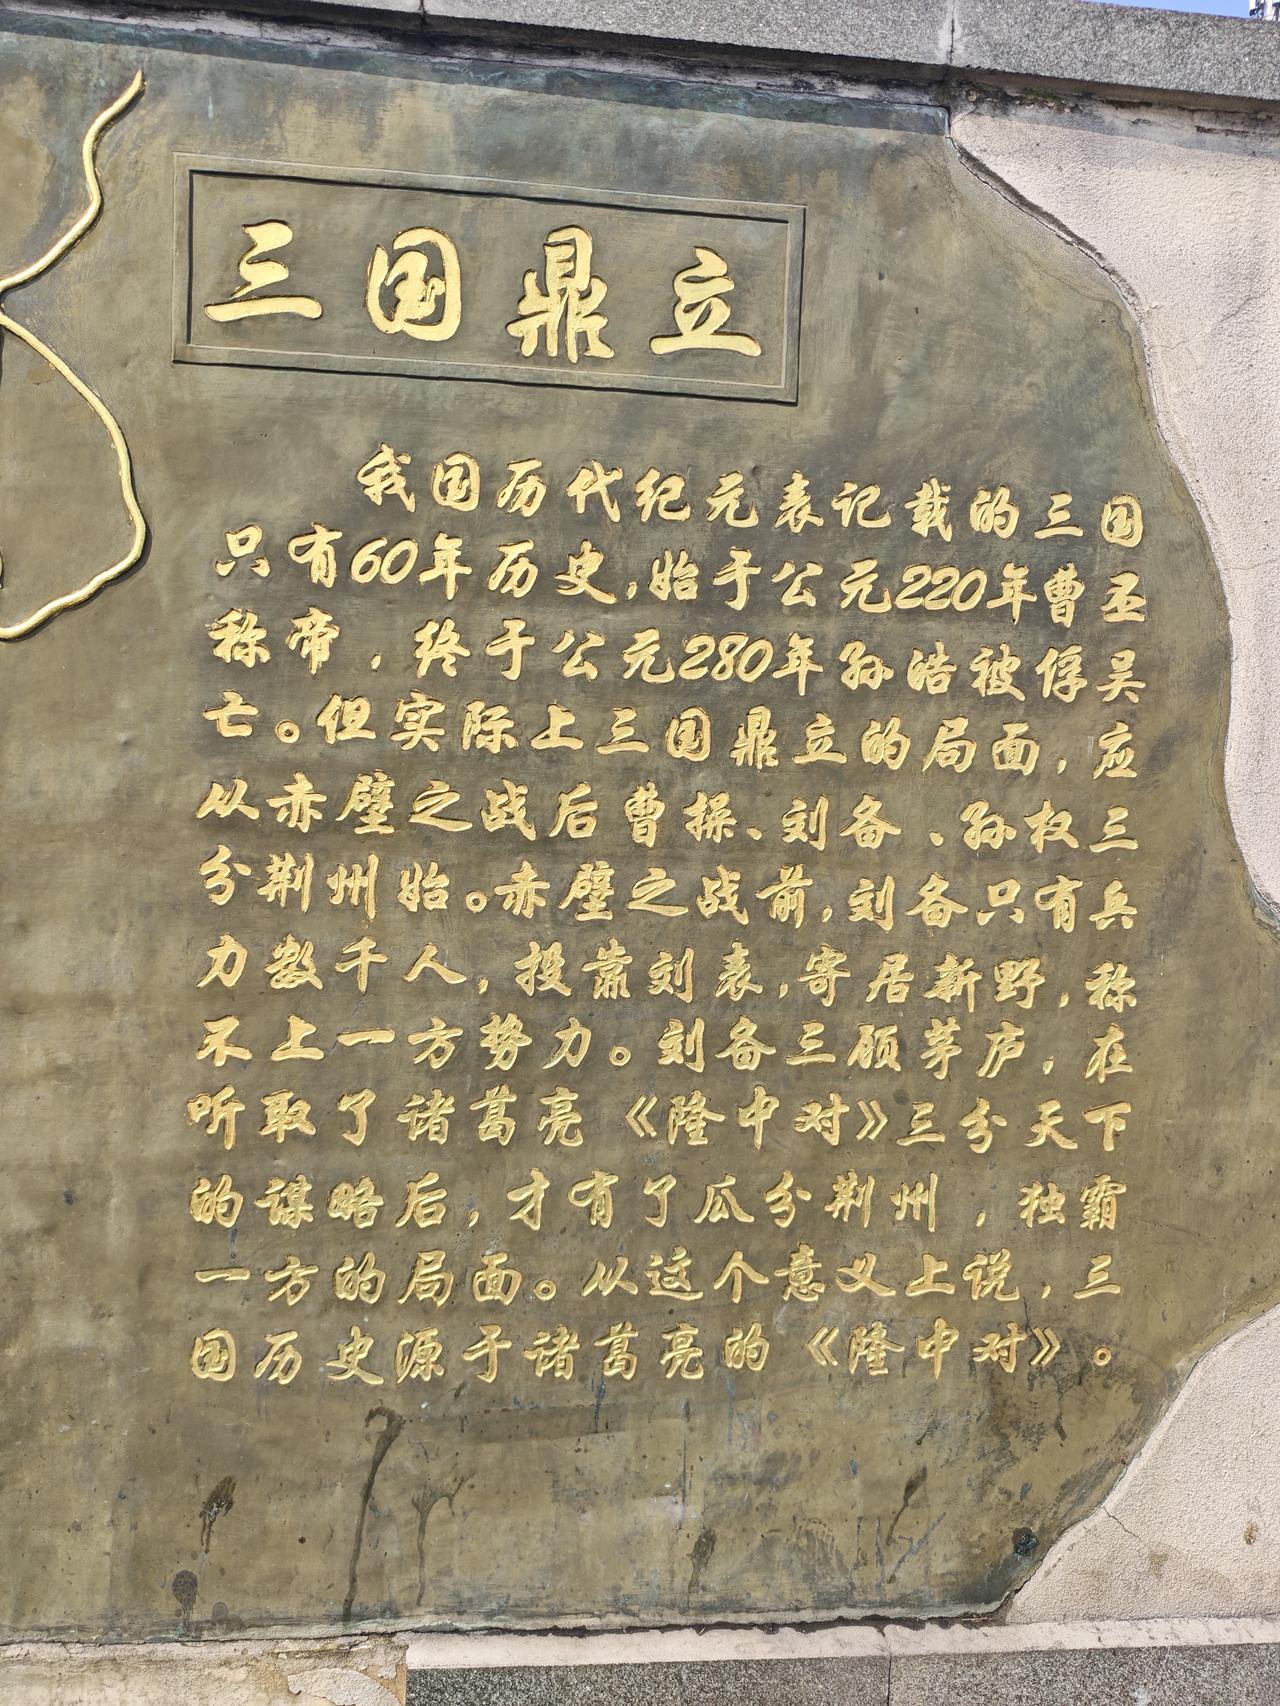 三国鼎立
我国历代纪元表记载的三国
只有60年历史,始于公元220年曹丕
称帝，终于公元280年孙皓被俘吴
亡。但实际上三国鼎立的局面,应
从赤壁之战后曹操、刘备、孙权三
分荆州始。赤壁之战前,刘备只有兵
力数千人,投靠刘表,寄居新野,称
不上一方势力。刘备三顾茅庐,在
听取了诸葛亮《隆中对》三分天下
的谋略后,才有了瓜分荆州,独霸
一方的局面。从这个意义上说,三
国历史源于诸葛亮的《隆中对》。